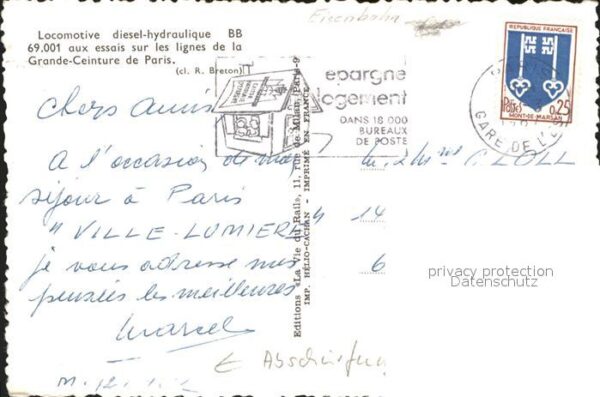 Locomotive diesel-hydraulique BB
69.001 aux essais sur les lignes de la
Grande-Ceinture de Paris.
(cl. R. Breton)
Eisenbahn
Chers Amis
A l'occasion de mon
séjour à Paris
"VILLE-LUMIERE"
je vous adresse mes
pensées les meilleures
Marcel
Editions «La Vie du Rail», 11, rue de Milan, Paris-9
IMP. HÉLIO-CACHAN - IMPRIMÉ EN FRANCE
epargne
logement
DANS 18 000
BUREAUX
DE POSTE
REPUBLIQUE FRANÇAISE
Postes
0,25
MONT-DE-MARSAN
GARE DE L'E
14
6
privacy protection
Datenschutz